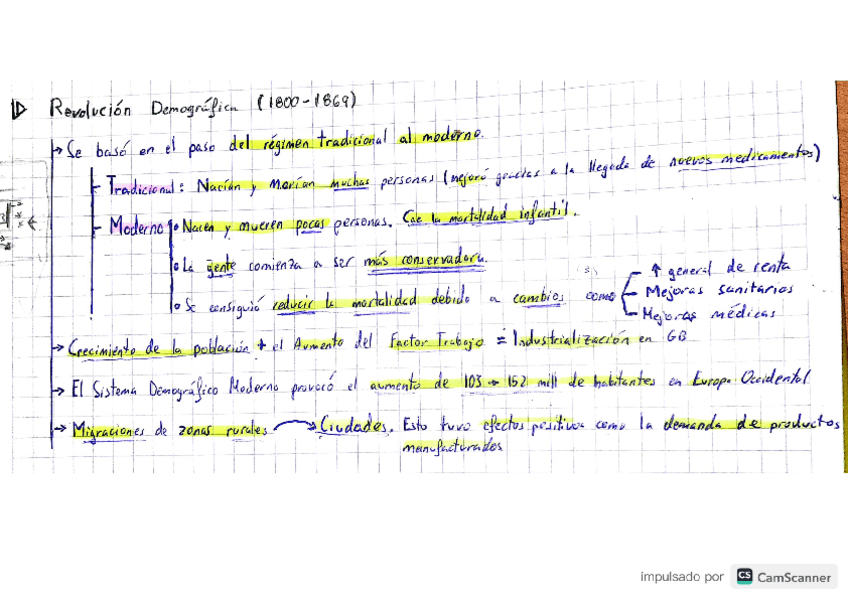 1) Revolución Demográfica (1800-1869)
→ Se basó en el paso del régimen tradicional al moderno.
- Tradicional: Nacían y Morían muchas personas (mejoró gracias a la llegada de nuevos medicamentos)
- Moderno • Nacen y mueren pocas personas. Cae la mortalidad infantil.
• La gente comienza a ser más conservadora.
• Se consiguió reducir la mortalidad debido a cambios como
- ↑ general de renta
- Mejoras sanitarias
- Mejoras médicas
→ Crecimiento de la población + el Aumento del Factor Trabajo = Industrialización en GB
→ El Sistema Demográfico Moderno provocó el aumento de 103 → 152 mill de habitantes en Europa Occidental
→ Migraciones de zonas rurales → Ciudades. Esto tuvo efectos positivos como la demanda de productos
manufacturados
impulsado por CS CamScanner